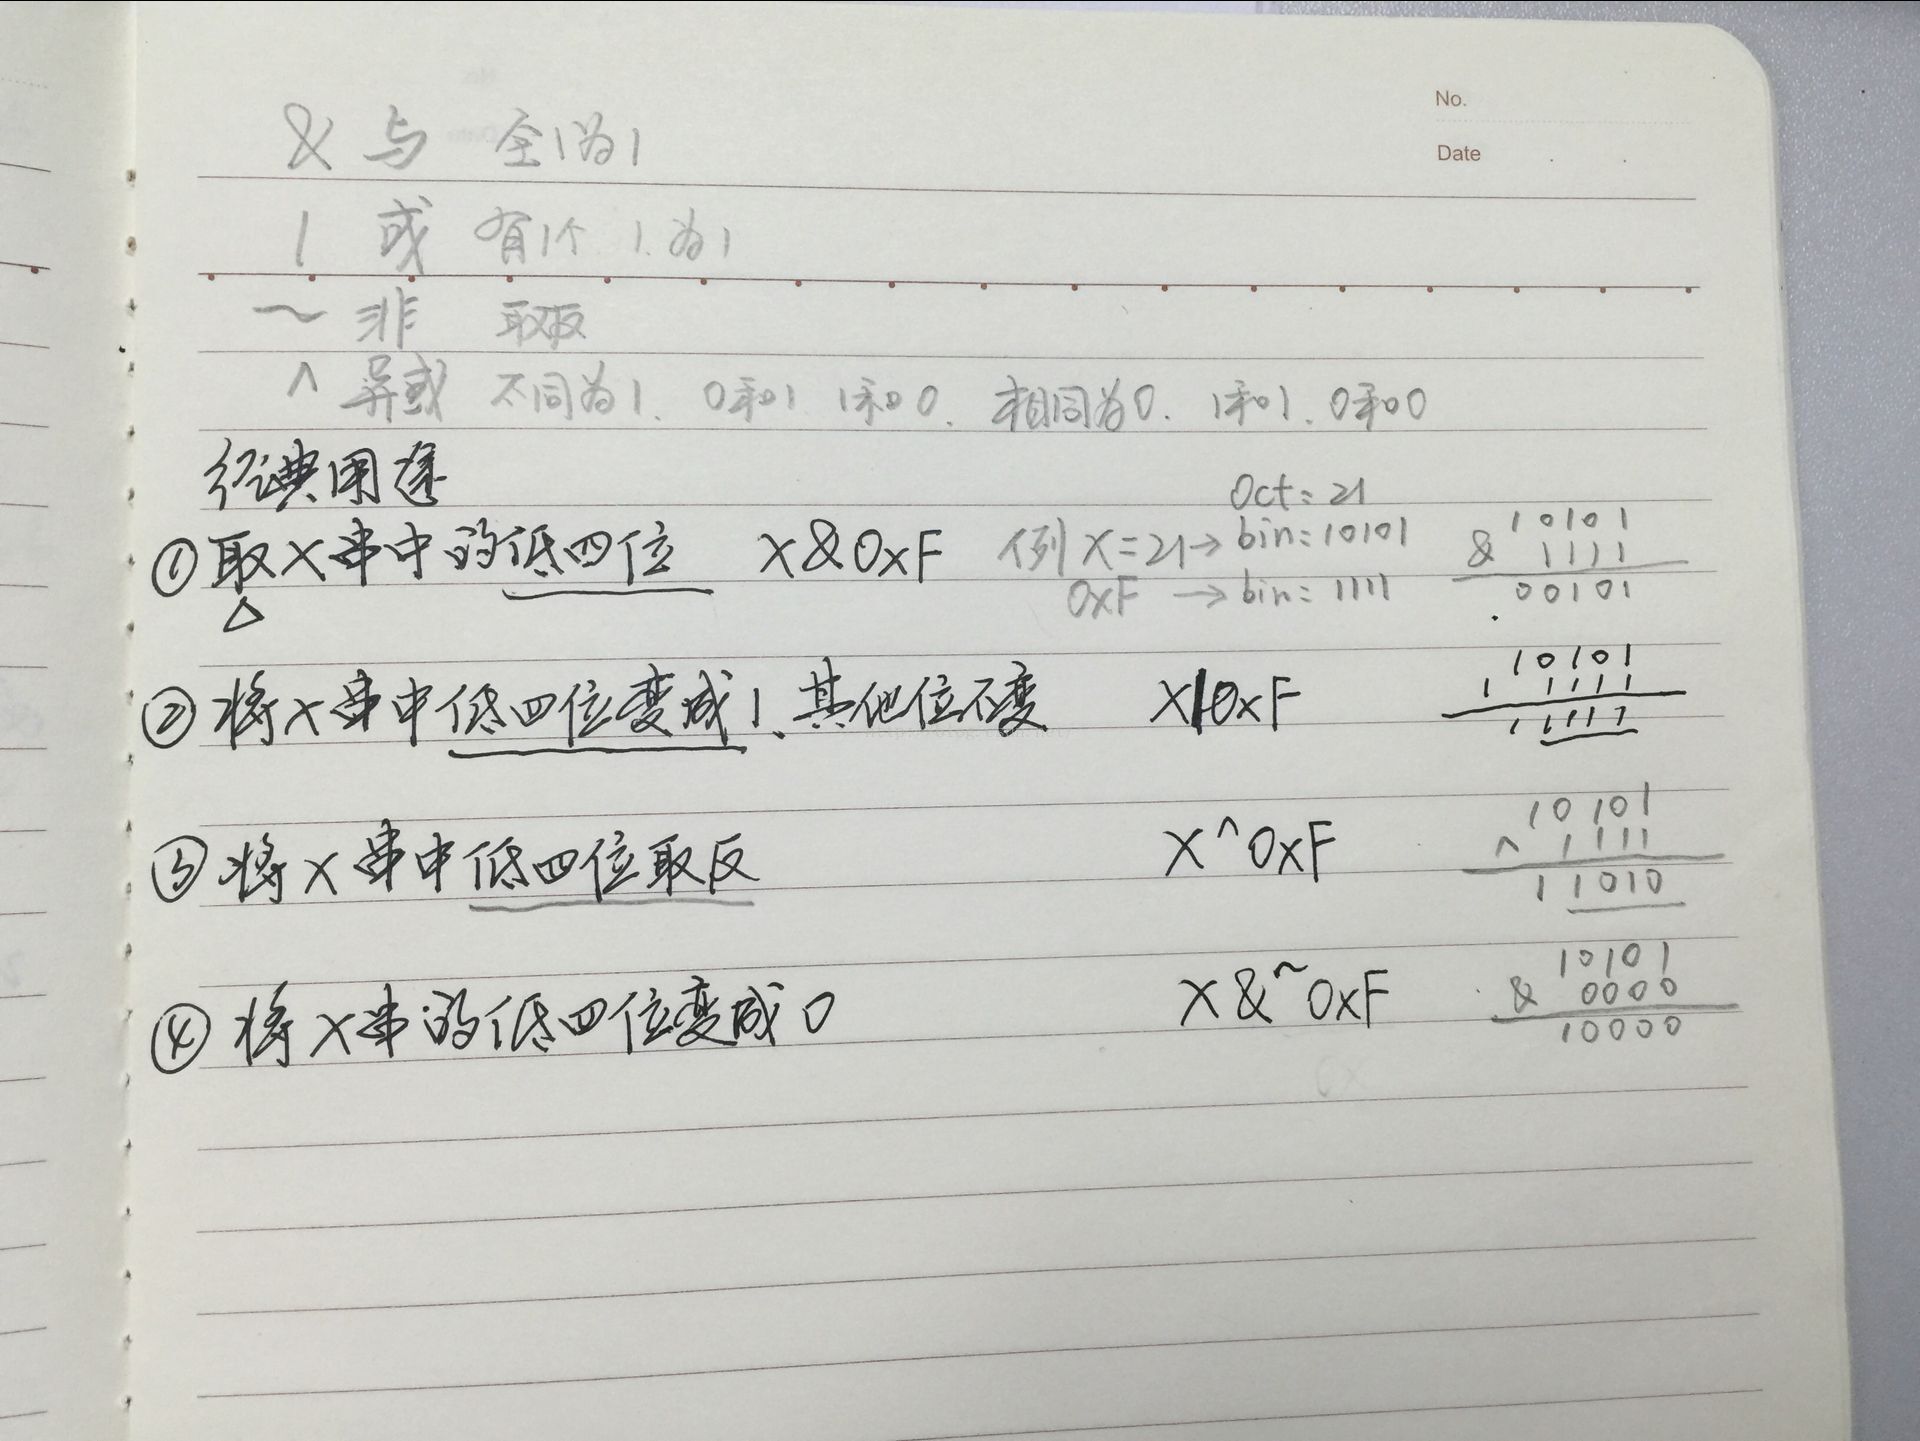 No.
Date
& 与 全1为1
| 或 有1个 1.为1
~ 非 取反
^ 异或 不同为1. 0和1 1和0. 相同为0. 1和1. 0和0
经典用途
Oct = 21
①取X串中的低四位 X&0xF 例 X=21→ bin=10101
0xF → bin= 1111
10101
& 1111
00101
②将X串中低四位变成1、其他位不变 X|0xF
10101
| 1111
11111
③将X串中低四位取反 X^0xF
10101
^ 1111
11010
④将X串的低四位变成0 X&~0xF
10101
& 0000
10000